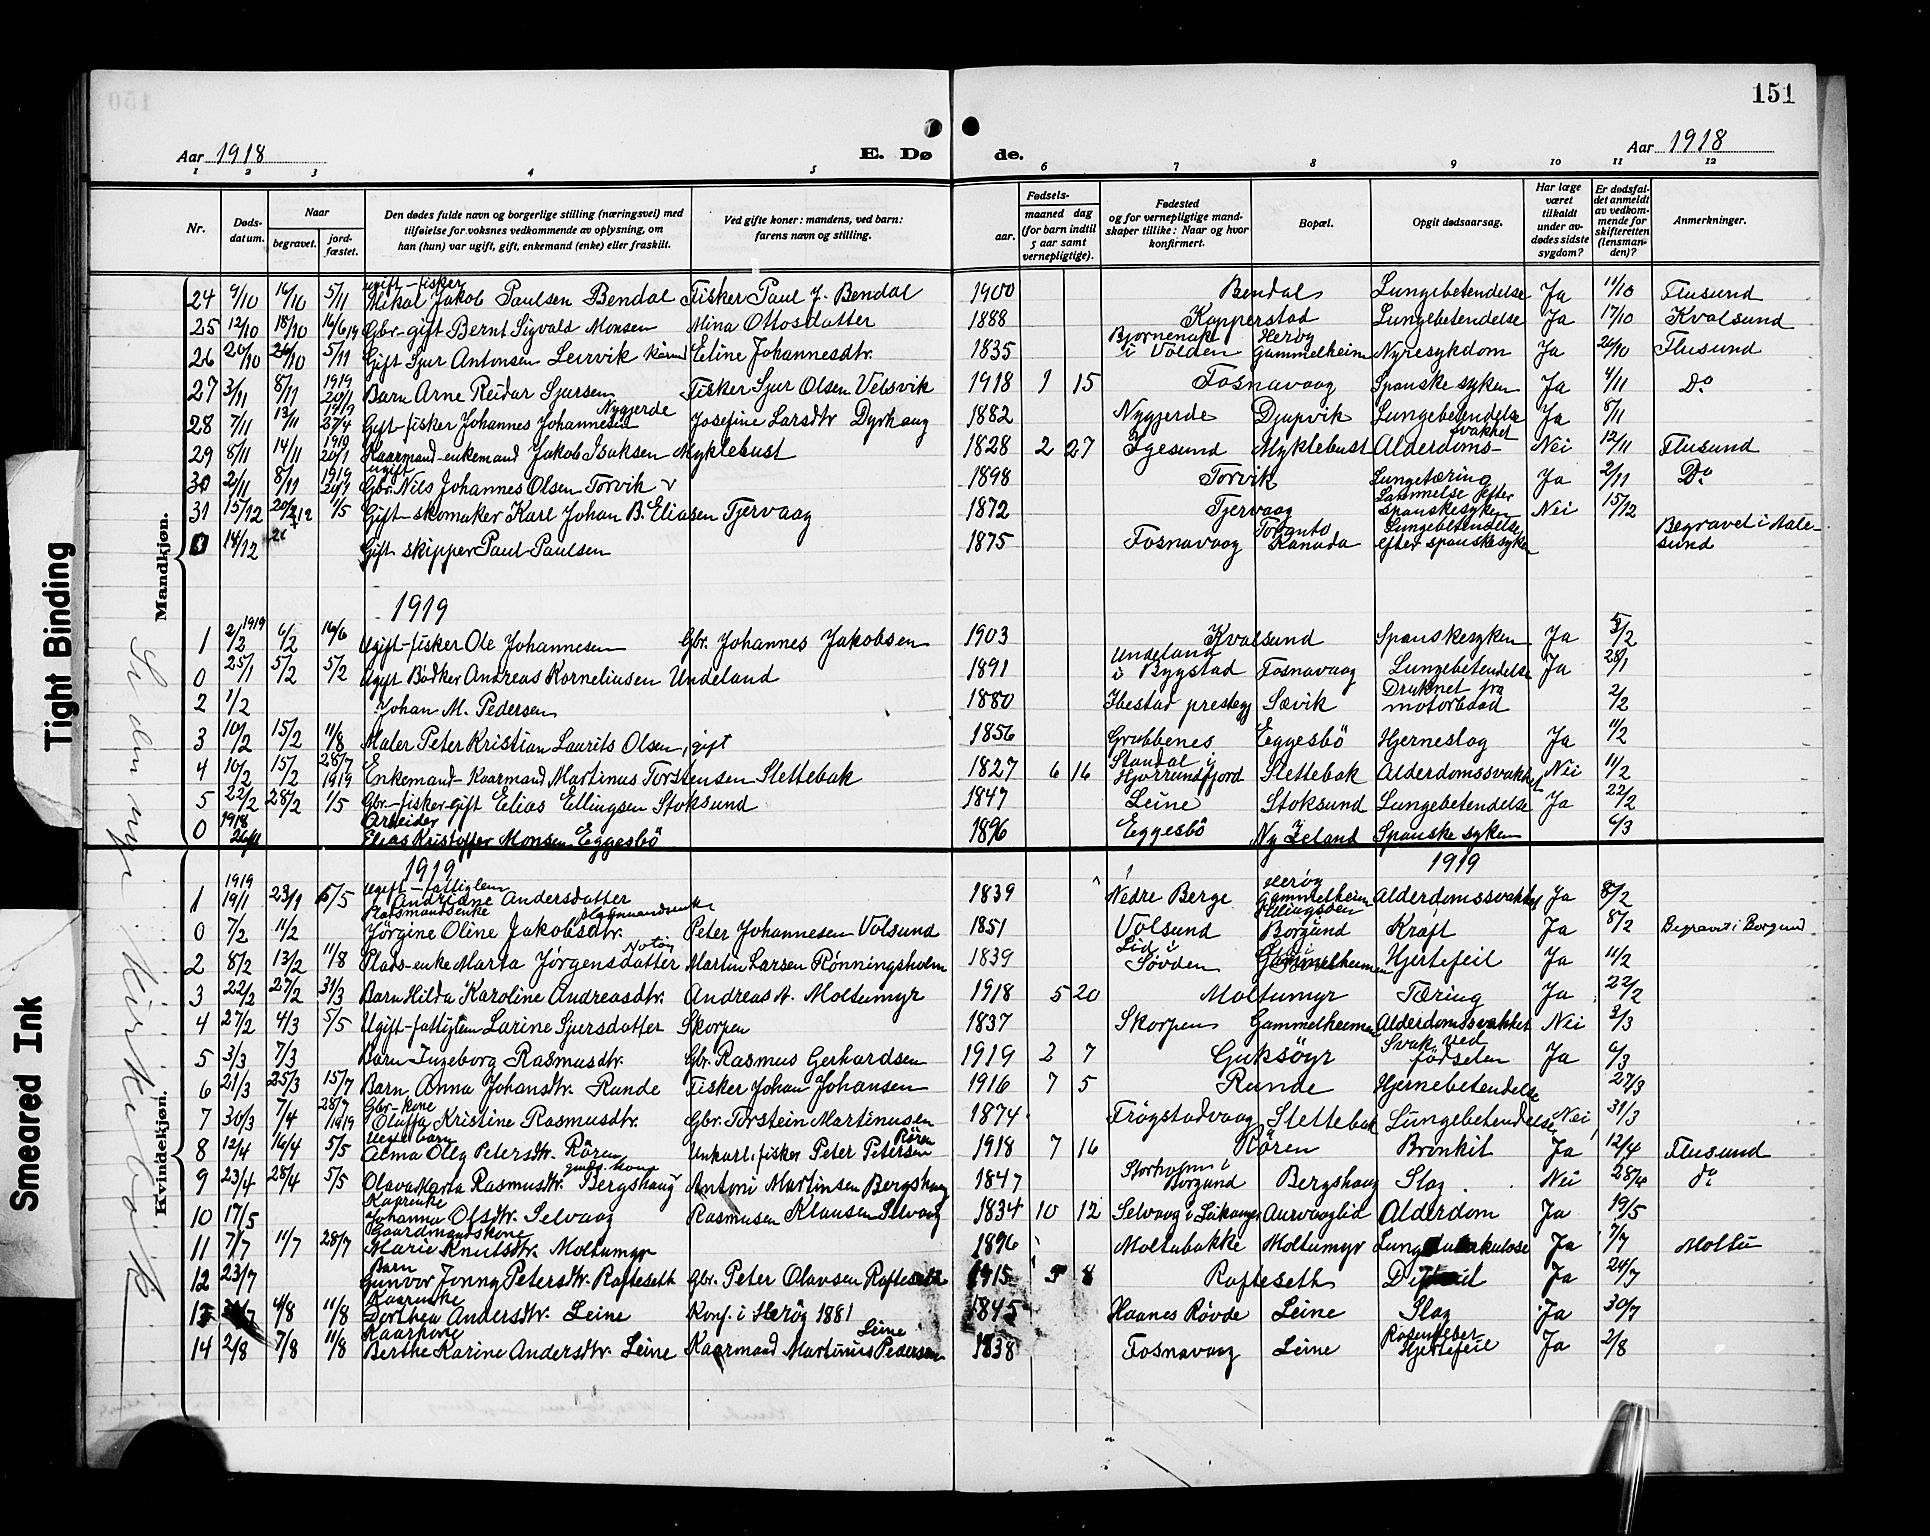 151
Aar 1918
E. Døde.
Aar 1918
1 2 3 4 5 6 7 8 9 10 11 12
Nr.
Døds-datum.
Naar
begravet.
jord-fæstet.
Den dødes fulde navn og borgerlige stilling (næringsvei) med tilføielse for voksnes vedkommende av oplysning, om han (hun) var ugift, gift, enkemand (enke) eller fraskilt.
Ved gifte koner: mandens, ved barn: farens navn og stilling.
Fødsels-
aar.
maaned dag
(for barn indtil 5 aar samt vernepligtige).
Fødested og for vernepligtige mandskaper tillike: Naar og hvor konfirmert.
Bopæl.
Opgit dødsaarsag.
Har læge været tilkaldt under avdødes sidste sygdom?
Er dødsfaldet anmeldt av vedkommende for skifteretten (lensmanden)?
Anmerkninger.
Mandkjøn.
24 9/10 16/10 5/11 ugift-fisker Mikal Jakob Paulsen Bendal Fisker Paul J. Bendal 1900 Bendal Lungebetendelse Ja 11/10 Flusund
25 12/10 18/10 16/6 19 Gbr. gift Bernt Sigvald Monsen Mina Ottosdatter 1888 Kopperstad Lungebetendelse Ja 17/10 Kvalsund
26 20/10 26/10 5/11 Gift Sjur Antonsen Leirvik Eline Johannesdtr. 1835 i Volden Herøy Gammelheim Nyresykdom Ja 26/10 Flusund
27 3/11 8/11 1919 20/1 Barn Arne Reidar Sjursen Fisker Sjur Olsen Velsvik 1918 1 15 Fosnavaag Spanske syken Ja 4/11 Do
28 7/11 13/11 1919 27/4 Gift-fisker Johannes Johannesen Nygjerde Josefine Larsdtr Dyrhaug 1882 Nygjerde Djupvik Lungebetendelse Ja 8/11
29 8/11 14/11 1919 20/1 Kaarmand-enkemand Jakob Isaksen Myklebust 1828 2 27 Igesund Myklebust Alderdoms-svakhet Nei 12/11 Flusund
30 2/11 8/11 1919 20/1 ugift Gbr. Nils Johannes Olsen Torvik 1898 Torvik Lungetæring Ja 2/11 Do
31 15/12 20/12 1/5 Gift-skomaker Karl Johan B. Eliasen Tjervaag 1872 Tjervaag Lammelse efter spanskesyken Nei 15/12
0 14/12 Gift skipper Paul Paulsen 1875 Fosnavaag Toronto Kanada Lungebetendelse efter spanskesyken Begravet i Aalesund
1919
1 2/2 1919 6/2 16/6 Ugift-fisker Ole Johannesen Gbr. Johannes Jakobsen 1903 Kvalsund Spanskesyken Ja 3/2
0 25/1 5/2 5/2 Ugift Bødker Andreas Korneliusen Undeland 1891 Undeland i Bygstad Fosnavaag Lungebetendelse Ja 28/1
2 1/2 Johan M. Pedersen 1880 Ibestad prestegj Sævik Druknet fra motorbaad 2/2
3 10/2 15/2 11/8 Maler Peter Kristian Laurits Olsen, gift 1856 Grubbenes Eggesbö Hjerneslag Ja 11/2
4 10/2 15/2 28/7 1919 Enkemand-Kaarmand Martinus Torstensen Slettebak 1827 6 16 Standal i Hjørrundfjord Slettebak Alderdomssvakhet Nei 11/2
5 22/2 28/2 1/5 Gbr.-fisker-gift Elias Ellingsen Stoksund 1847 Leine Stoksund Lungebetendelse Ja 22/2
0 1918 26/11 Arbeider Elias Kristoffer Monsen Eggesbö 1896 Eggesbö Ny Zeland Spanske syken 6/3
Kvindekjøn.
1919
1919
1 1919 19/1 23/1 5/5 ugift-fattiglem Andriane Andersdatter 1839 Nedre Berge Herøy Gammelheim Alderdomssvakhet Ja 8/2
0 7/2 11/2 Pladsmandsenke Jörgine Oline Jakobsdtr. Peter Johannesen Volsund 1851 Volsund Borgund Kræft Ja 8/2 Begravet i Borgund
2 8/2 13/2 11/8 Plads-enke Marta Jörgensdatter Martin Larsen Rönningsholm 1839 Lid i Søvden Gammelheimen Hjertefeil Ja 11/2
3 22/2 27/2 31/3 Barn Hilda Karoline Andreasdtr. Andreas A. Moltumyr 1918 5 20 Moltumyr Tæring Ja 22/2
4 27/2 4/3 5/5 Ugift-fattiglem Larine Sjursdatter Skorpen 1837 Skorpen Gammelheimen Alderdomssvakhet Nei 3/3
5 3/3 7/3 Barn Ingeborg Rasmusdtr. Gbr. Rasmus Gerhardsen 1919 2 7 Guksöyr Svak ved födselen Ja 6/3
6 21/3 25/3 15/7 Barn Anna Johansdtr. Runde Fisker Johan Johansen 1916 7 5 Runde Hjernebetendelse 27/3
7 30/3 7/4 28/7 1919 Gbr-kone Oluffa Kristine Rasmusdtr. Gbr. Torstein Martinusen 1874 Frøgstadvaag Slettebak Lungebetendelse Nei 31/3
8 12/4 16/4 5/5 Uegte barn Alma Oleg Petersdtr. Rören Unkarl. fisker Peter Petersen Rören 1918 7 16 Rören Bronkit Ja 12/4 Flusund
9 23/4 28/4 5/5 Olava Marta Rasmusdtr. Bergshaug Antoni Martinsen Bergshaug 1847 Storholm i Borgund Bergshaug Slag Nei 28/4 do
10 17/5 Kaarenke Johanna Olsdtr. Selvaag Rasmusen Klausen Selvaag 1834 10 12 Selvaag i Leikanger Aurvaaglid Alderdom Ja 19/5
11 7/7 11/7 28/7 Gaardmandskone Marie Knutsdtr. Moltumyr 1896 Moltubakke Moltumyr Ja 7/7 Moltu
12 23/7 Barn Gunvor Jonny Petersdtr. Rafteseth Gbr. Peter Olavsen Rafteseth 1915 5 8 Rafteseth Ja 24/7
13 4/8 11/8 Kaarenke Dorthea Andersdtr. Leine Konf. i Herøy 1881 1845 Haanes Rövde Leine Slag Ja 30/7
14 2/8 7/8 11/8 Kaarkone Berthe Karine Andersdtr. Leine Kaarmand Martinus Pedersen Leine 1838 Fosnavaag Leine Hjertefeil Ja 2/8
Tight Binding
Smeared Ink